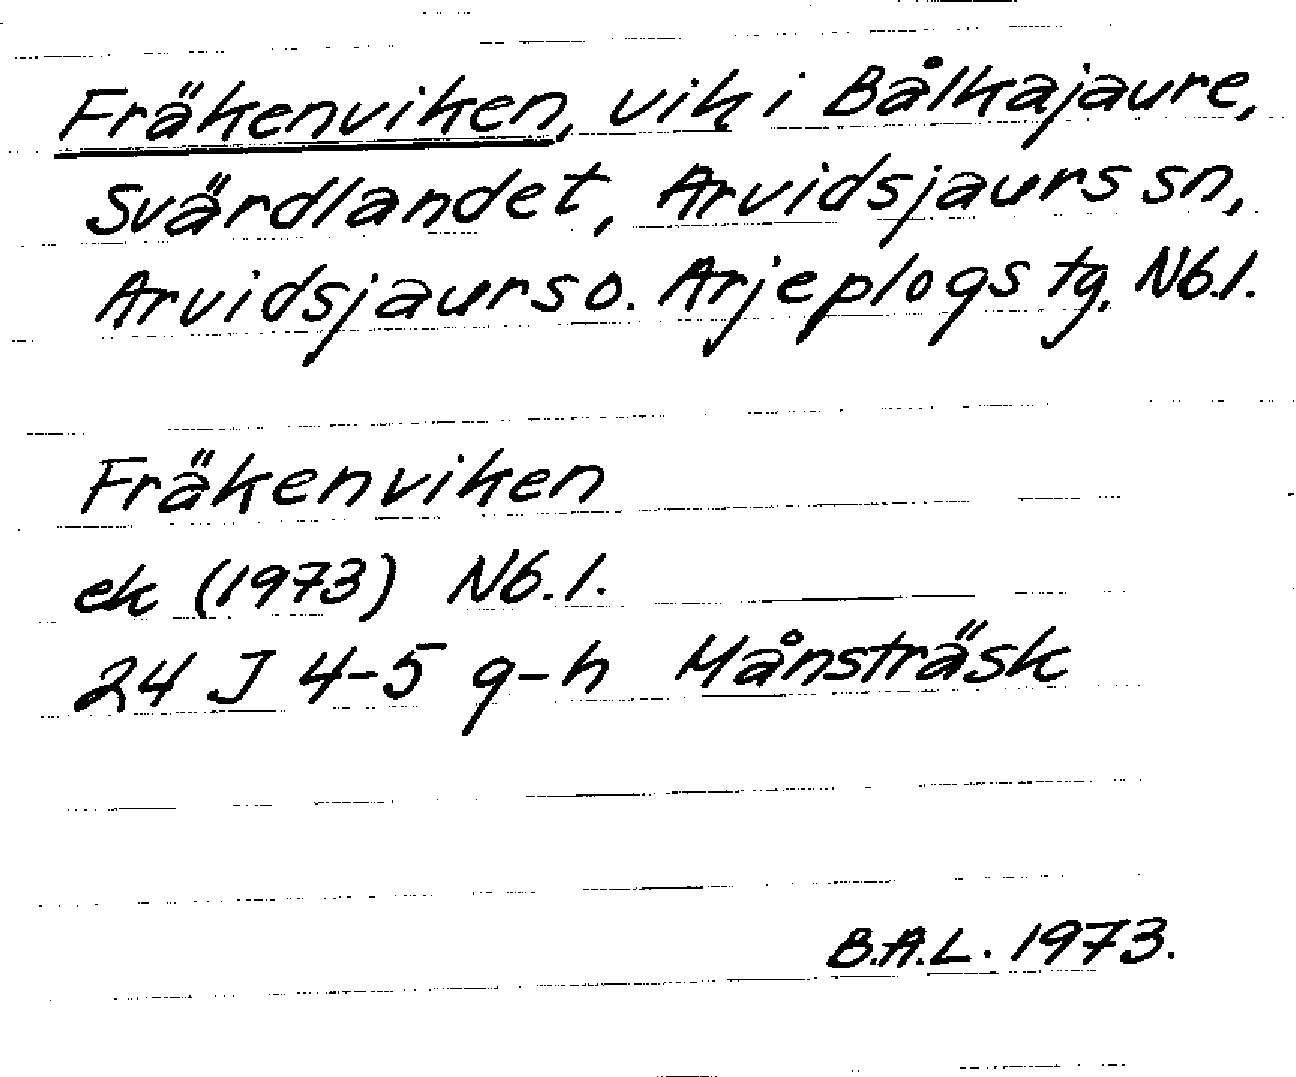 Fräkenviken, vik i Bålkajaure,
Svärdlandet, Arvidsjaurs sn,
Arvidsjaurs o. Arjeplogs tg. Nb.l.
Fräkenviken
ek (1973) Nb.l.
24 J 4-5 g-h Månsträsk
B.A.L. 1973.